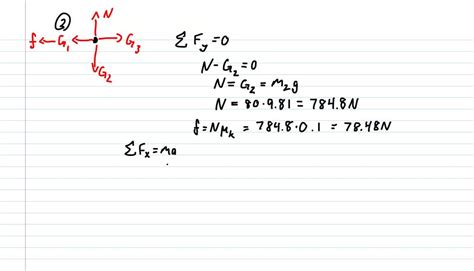 ② N
f G₁ G₃
G₂
∑ F_y = 0
N - G₂ = 0
N = G₂ = m₂g
N = 80 · 9.81 = 784.8N
f = Nμ_k = 784.8 · 0.1 = 78.48N
∑ F_x = ma